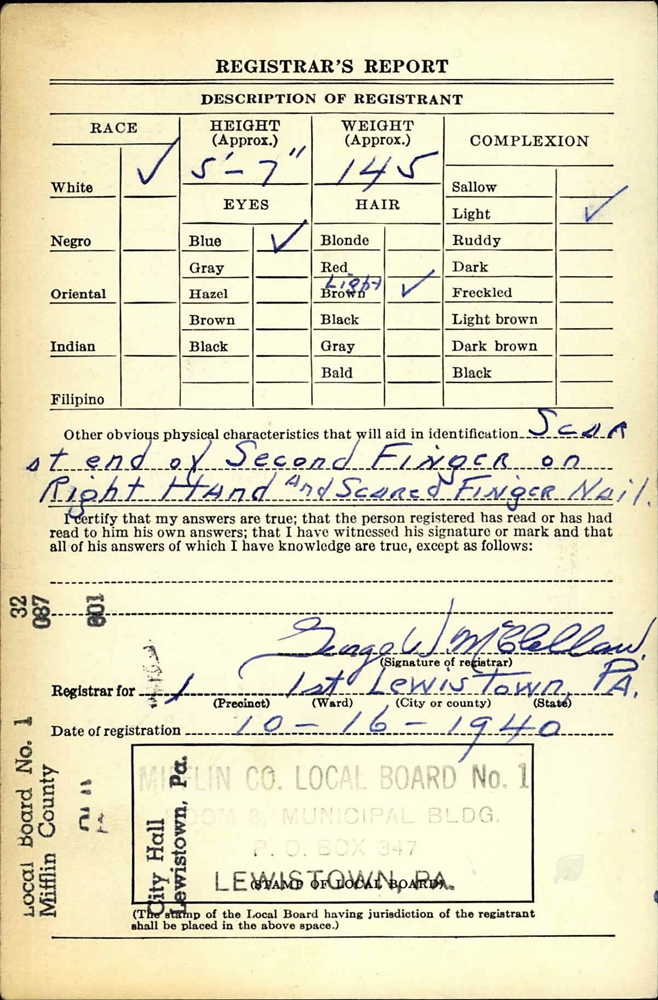 REGISTRAR'S REPORT
DESCRIPTION OF REGISTRANT
RACE
HEIGHT (Approx.)
WEIGHT (Approx.)
COMPLEXION
5'-7"
145
White ✓
EYES
HAIR
Sallow
Light ✓
Negro
Blue ✓
Blonde
Ruddy
Gray
Red
Dark
Oriental
Hazel
Light
Brown ✓
Freckled
Brown
Black
Light brown
Indian
Black
Gray
Dark brown
Bald
Black
Filipino
Other obvious physical characteristics that will aid in identification Scar
at end of Second Finger on
Right Hand and Scared Finger Nail.
I certify that my answers are true; that the person registered has read or has had
read to him his own answers; that I have witnessed his signature or mark and that
all of his answers of which I have knowledge are true, except as follows:
32
087
601
George W McClellan
(Signature of registrar)
Registrar for 1 1st Lewistown, PA.
(Precinct) (Ward) (City or county) (State)
Date of registration 10-16-1940
Local Board No. 1
Mifflin County
City Hall
Lewistown, Pa.
MIFFLIN CO. LOCAL BOARD No. 1
ROOM 8, MUNICIPAL BLDG.
P. O. BOX 347
LEWISTOWN, PA.
(STAMP OF LOCAL BOARD)
(The stamp of the Local Board having jurisdiction of the registrant
shall be placed in the above space.)